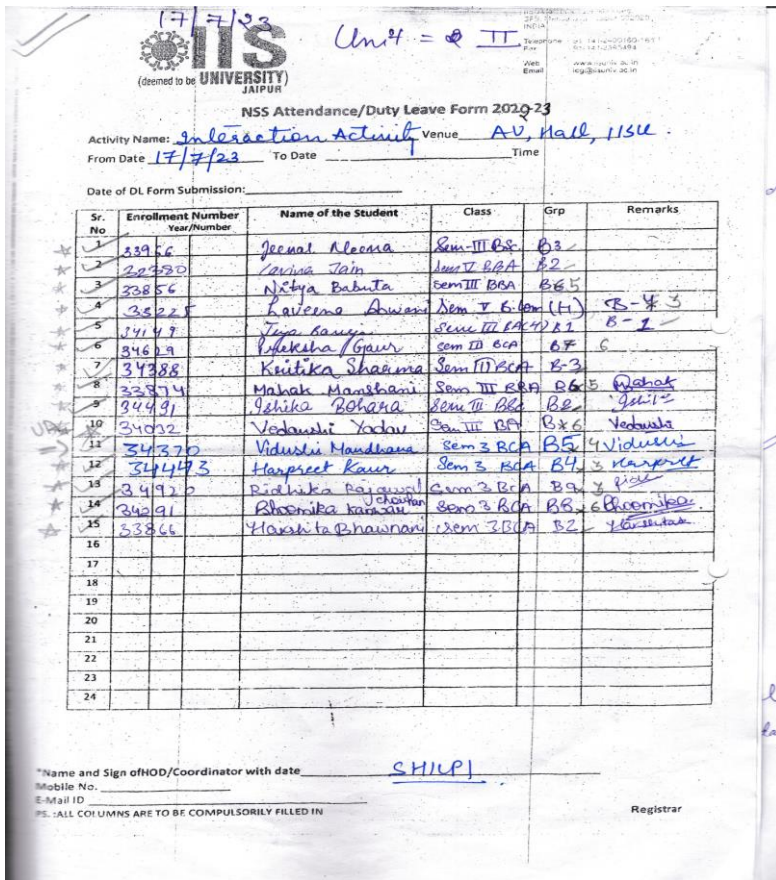 17/7/23
Unit = II
INDIA
IIS
(deemed to be UNIVERSITY)
JAIPUR
Telephone
Fax
Web
Email
NSS Attendance/Duty Leave Form 2022-23
Activity Name: Interaction Activity Venue AV, Hall, IISU.
From Date 17/7/23 To Date Time
Date of DL Form Submission:
Sr. No Enrollment Number Year/Number Name of the Student Class Grp Remarks
1 33956 Jeenal Meena Sem-III B3
2 32380 Lavina Jain Sem V BBA B2
3 33856 Nitya Babuta Sem III BBA B65
4 33225 Laveena Aswani Sem V B.Com (H) B-4 3
5 34149 Sem III BA(H) B1 B-1
6 34629 Gaur Sem III BCA B7 6
7 34388 Kritika Sharma Sem III BCA B-3
8 33874 Mahak Manshani Sem III BBA B6 5 Mahak
9 34491 Ishika Bohara Sem III B2
10 34032 Vedanshi Yadav Sem III BA B 6 Vedanshi
11 34370 Vidushi Mandhana Sem 3 BCA B5 4 Vidushi
12 34443 Harpreet Kaur Sem 3 BCA B4 3 Harpreet
13 34920 Ridhika Rajawat Sem 3 BCA B9
14 34291 Bhoomika Kanwar chouhan Sem 3 BCA B8 6 Bhoomika
15 33866 Harshita Bhawnani Sem 3 BCA B2
16
17
18
19
20
21
22
23
24
*Name and Sign ofHOD/Coordinator with date SHILPI
Mobile No.
E-Mail ID
PS. :ALL COLUMNS ARE TO BE COMPULSORILY FILLED IN Registrar